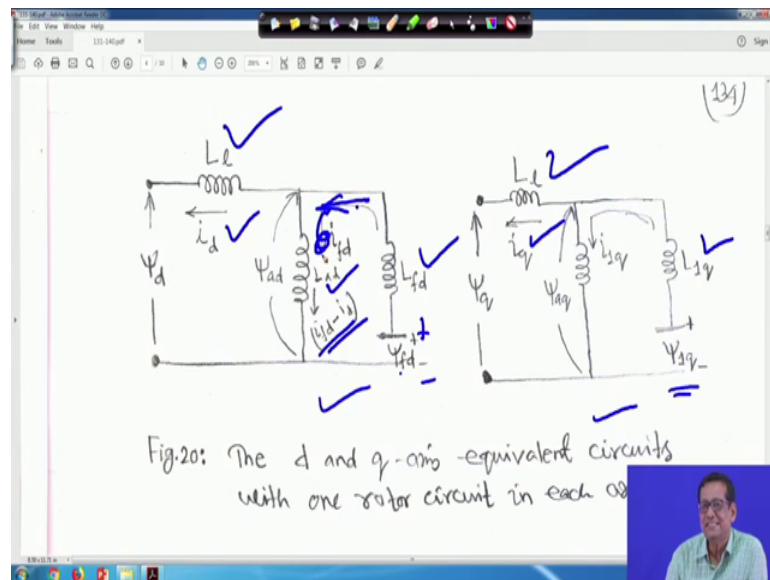 131-140.pdf - Adobe Acrobat Reader DC
File Edit View Window Help
Home Tools 131-140.pdf × Sign
4 / 10 200%
134
L_l L_l
i_d i_fd i_q i_1q
Ψ_d Ψ_ad L_ad L_fd Ψ_q Ψ_aq L_1q
(i_fd - i_d)
Ψ_fd + - Ψ_1q + -
Fig.20: The d and q-axis equivalent circuits
with one rotor circuit in each